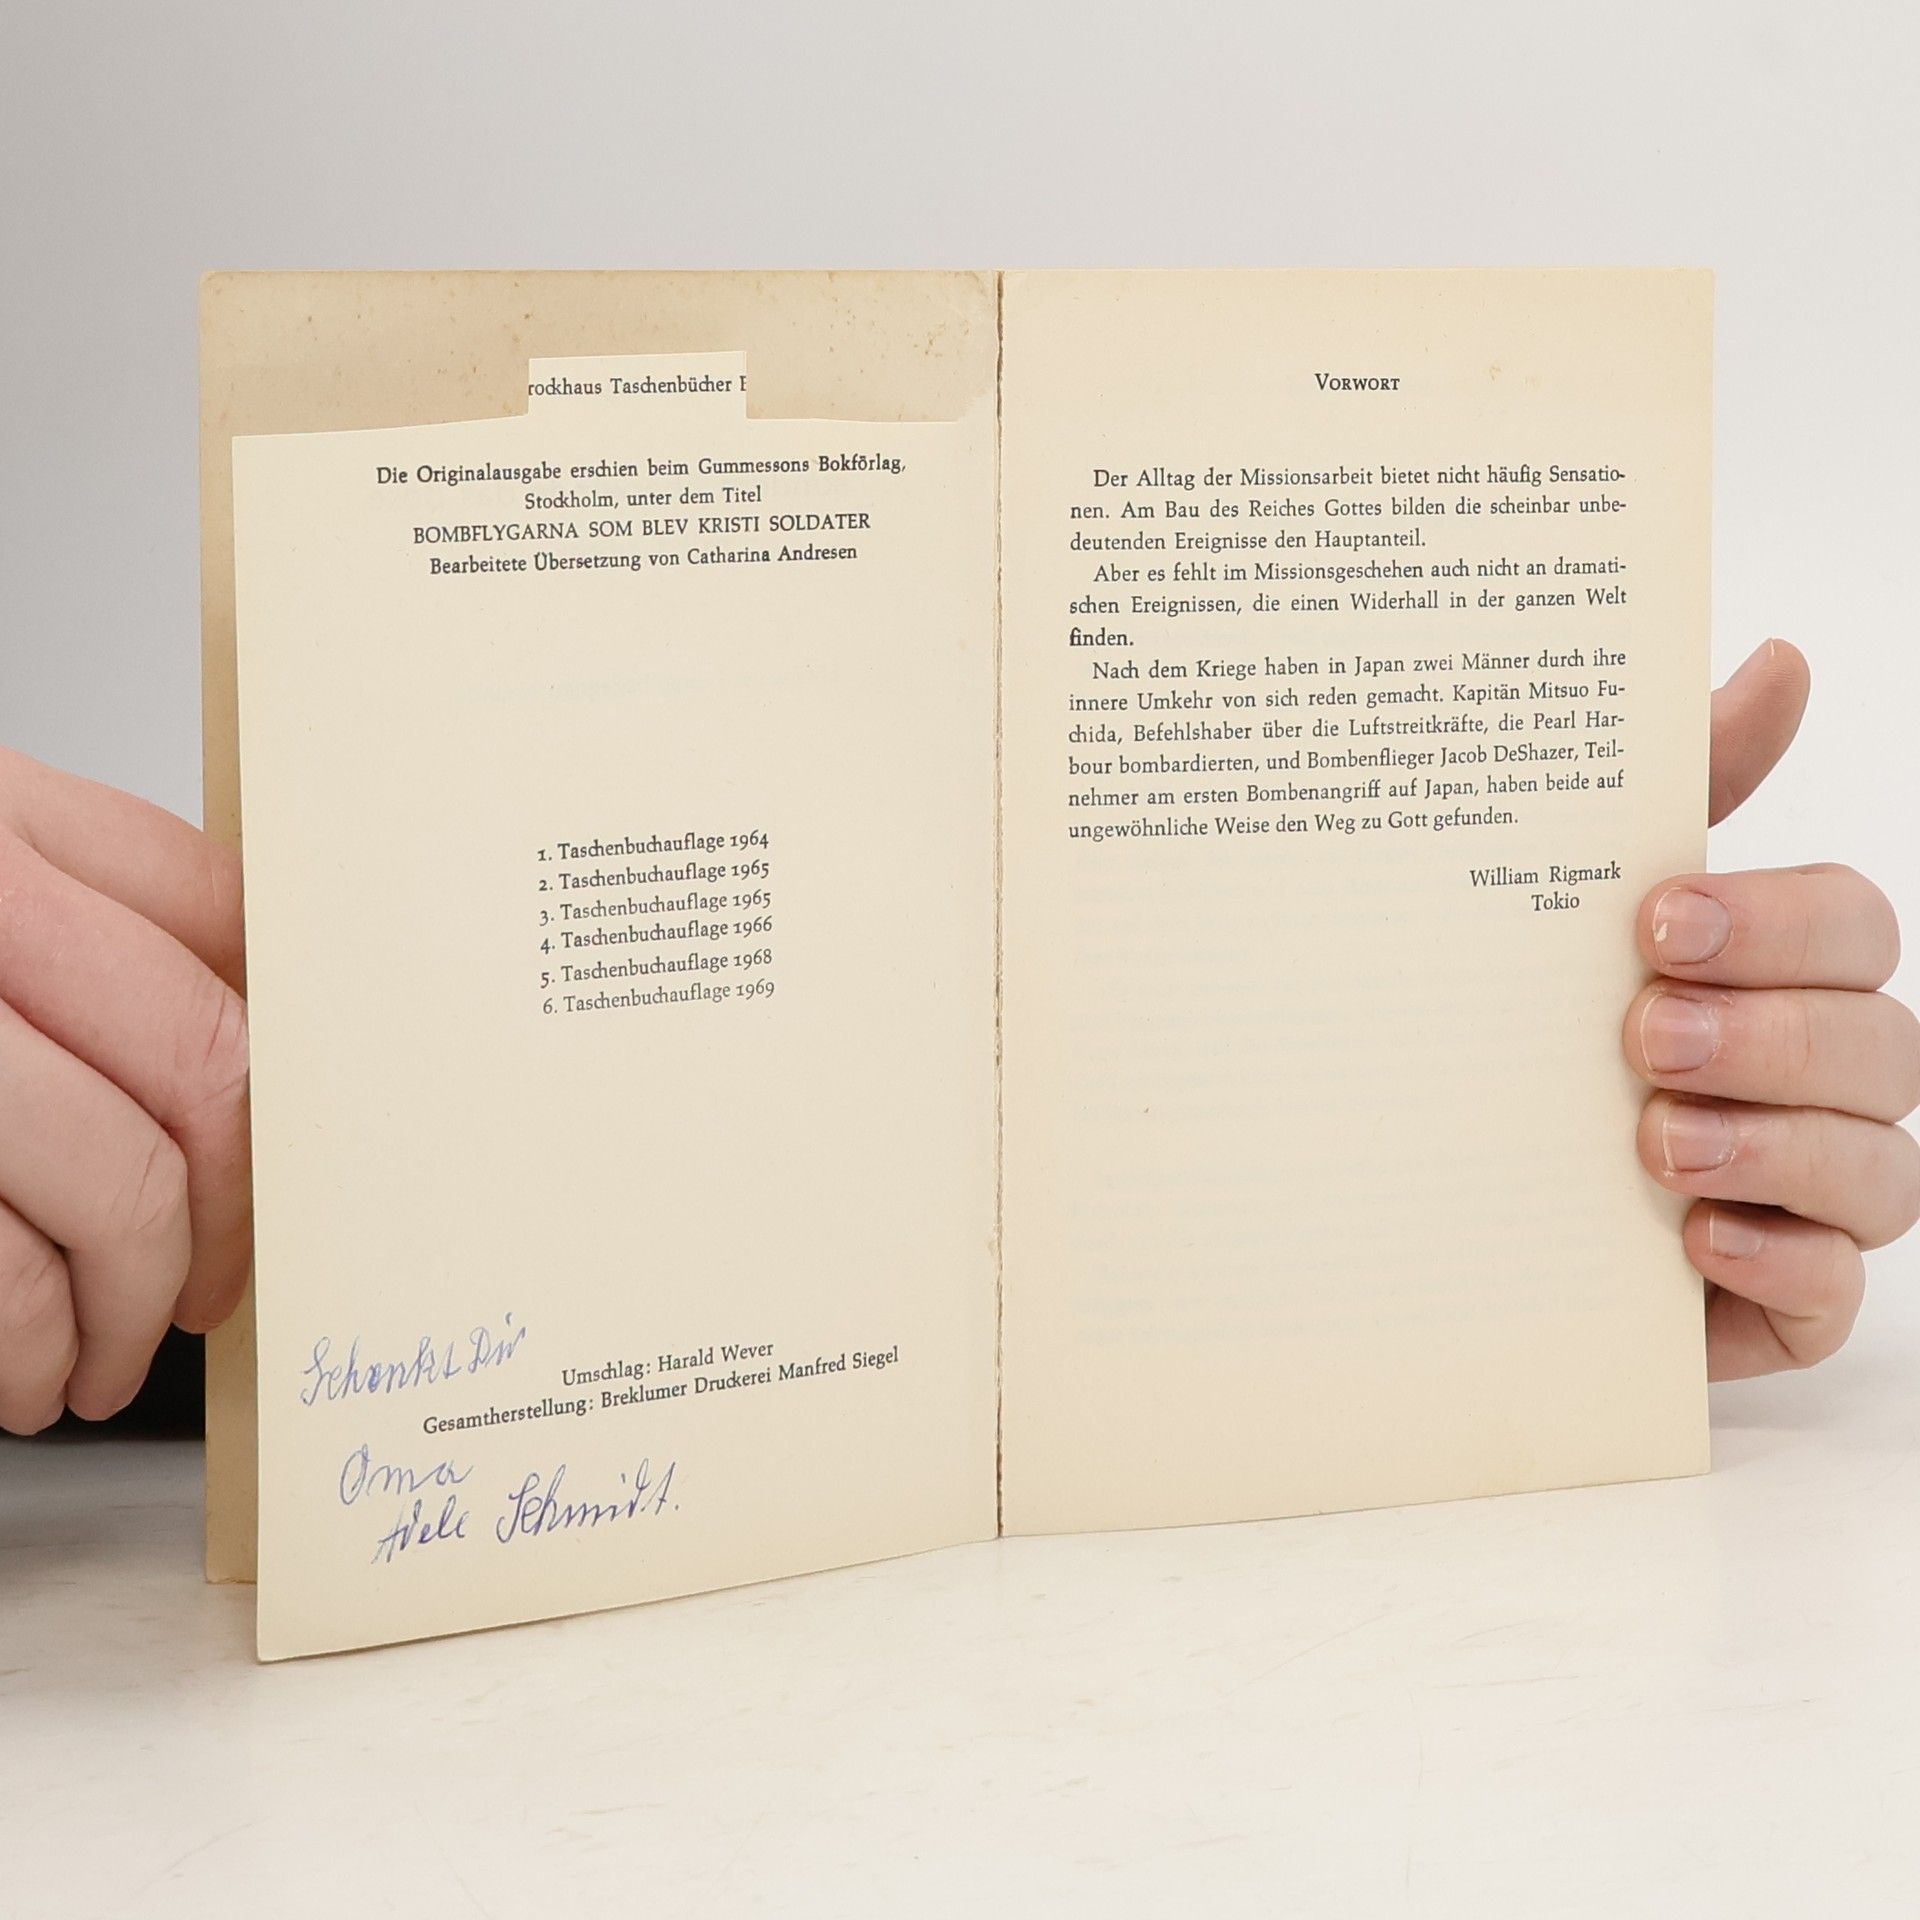 rockhaus Taschenbücher B
Die Originalausgabe erschien beim Gummessons Bokförlag,
Stockholm, unter dem Titel
BOMBFLYGARNA SOM BLEV KRISTI SOLDATER
Bearbeitete Übersetzung von Catharina Andresen
1. Taschenbuchauflage 1964
2. Taschenbuchauflage 1965
3. Taschenbuchauflage 1965
4. Taschenbuchauflage 1966
5. Taschenbuchauflage 1968
6. Taschenbuchauflage 1969
Schenkt Dir
Umschlag: Harald Wever
Gesamtherstellung: Breklumer Druckerei Manfred Siegel
Oma
Adele Schmidt.
VORWORT
Der Alltag der Missionsarbeit bietet nicht häufig Sensatio-
nen. Am Bau des Reiches Gottes bilden die scheinbar unbe-
deutenden Ereignisse den Hauptanteil.
Aber es fehlt im Missionsgeschehen auch nicht an dramati-
schen Ereignissen, die einen Widerhall in der ganzen Welt
finden.
Nach dem Kriege haben in Japan zwei Männer durch ihre
innere Umkehr von sich reden gemacht. Kapitän Mitsuo Fu-
chida, Befehlshaber über die Luftstreitkräfte, die Pearl Har-
bour bombardierten, und Bombenflieger Jacob DeShazer, Teil-
nehmer am ersten Bombenangriff auf Japan, haben beide auf
ungewöhnliche Weise den Weg zu Gott gefunden.
William Rigmark
Tokio